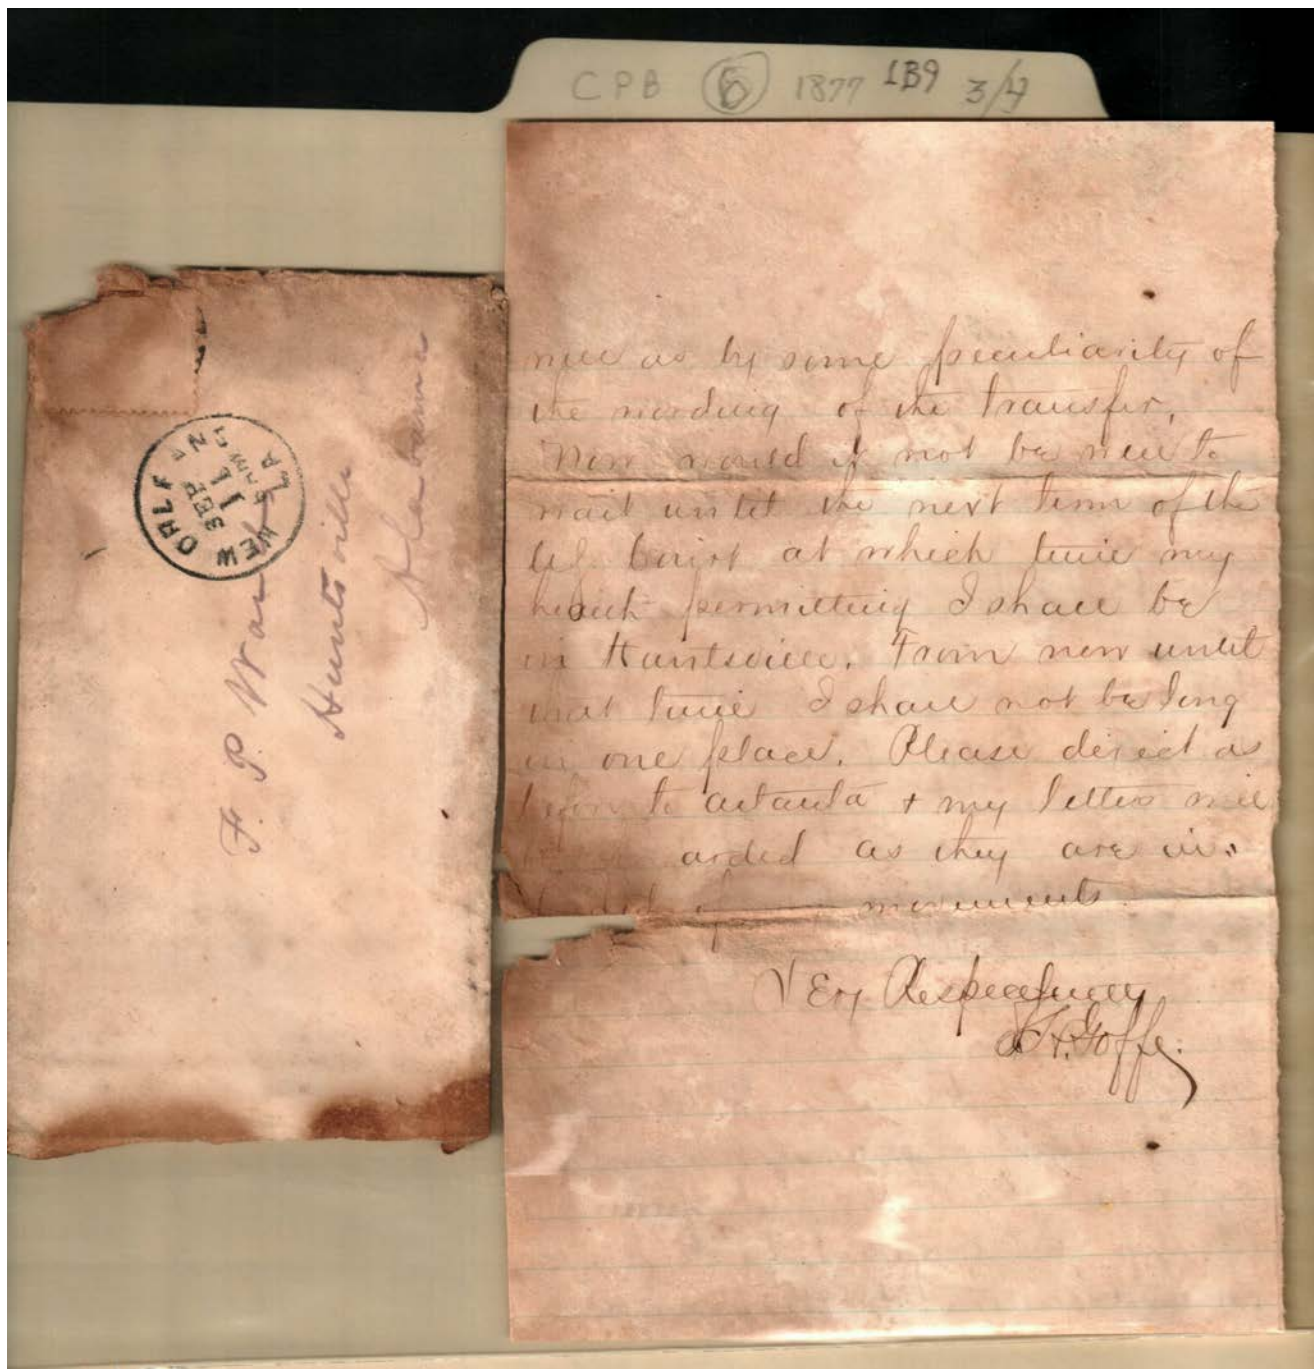 CPB 6 1877 1B9 3/4
NEW ORLEANS LA
SEP
11
5 AM
F. P. Ward
Huntsville
Alabama
will as by some peculiarity of
the wording of the transfer.
Now would it not be well to
wait until the next term of the
Court at which time my
health permitting I shall be
in Huntsville. From now until
that time I shall not be long
in one place. Please direct as
before to Atlanta & my letters will
arded as they are in.
movements.
Very Respectfully
H. Goffe.